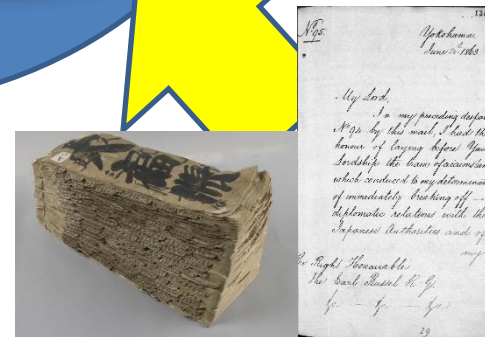 大福帳
No 95.
Yokohama
June 24 1863
My Lord,
In my preceding despat
No 94 by this mail, I had th
honour of laying before You
Lordship the train of circumstan
which conduced to my determina
of immediately breaking off —
diplomatic relations with the
Japanese Authorities and of
Right Honourable
The Earl Russell K. G.
&c — &c — &c
29